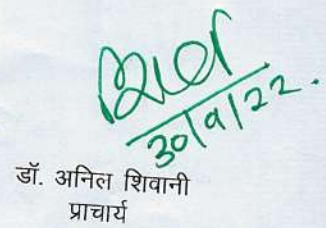 30/9/22.
डॉ. अनिल शिवानी
प्राचार्य